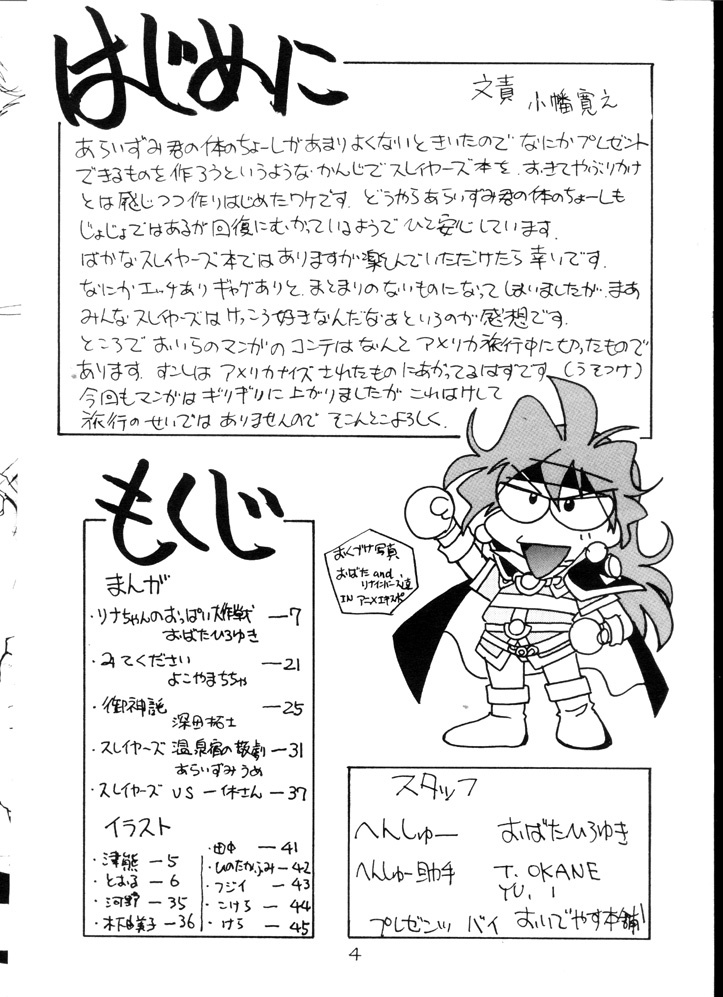 はじめに
文責 小幡寛え
あらいずみ君の体のちょーしがあまりよくないときいたので なにかプレゼント
できるものを作ろうというような かんじでスレイヤーズ本を、おきてやぶりかけ
とは感じつつ作りはじめたワケです。どうやらあらいずみ君の体のちょーしも
じょじょではあるが回復にむかっているようで ひと安心しています。
ばかなスレイヤーズ本ではありますが楽しんでいただけたら幸いです。
なにかエッチありギャグありと、まとまりのないものになってしまいましたが、まあ
みんなスレイヤーズはけっこう好きなんだなあというのが感想です。
ところでおいらのマンガのコンテはなんとアメリカ旅行中に切ったもので
あります。すこしはアメリカナイズされたものにあがってるはずです(うそつけ)
今回もマンガはギリギリに上がりましたが これはけして
旅行のせいではありませんので そこんとこよろしく.
もくじ
まんが
・リナちゃんのおっぱい大作戦 —7
おばたひろゆき
・みてください —21
よこやまちちゃ
・御神託 —25
深田拓士
・スレイヤーズ 温泉宿の惨劇 —31
あらいずみうめ
・スレイヤーズ VS 一休さん —37
イラスト
・津熊 —5
・とおる —6
・河野 —35
・木下美子 —36
・田中 —41
・ひのたかふみ —42
・フジイ —43
・こけら —44
・けら —45
おくづけ写真
おばた and
リナインバース達
IN アニメエキスポ
スタッフ
へんしゅー おばたひろゆき
へんしゅー助手 T. OKANE
YU. I
プレゼンツ バイ おいでやす本舗
4